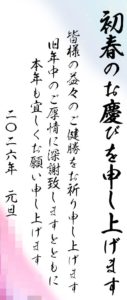 初春のお慶びを申し上げます
皆様の益々のご健勝をお祈り申し上げます
旧年中のご厚情に深謝致しますとともに
本年も宜しくお願い申し上げます
二〇二六年 元旦